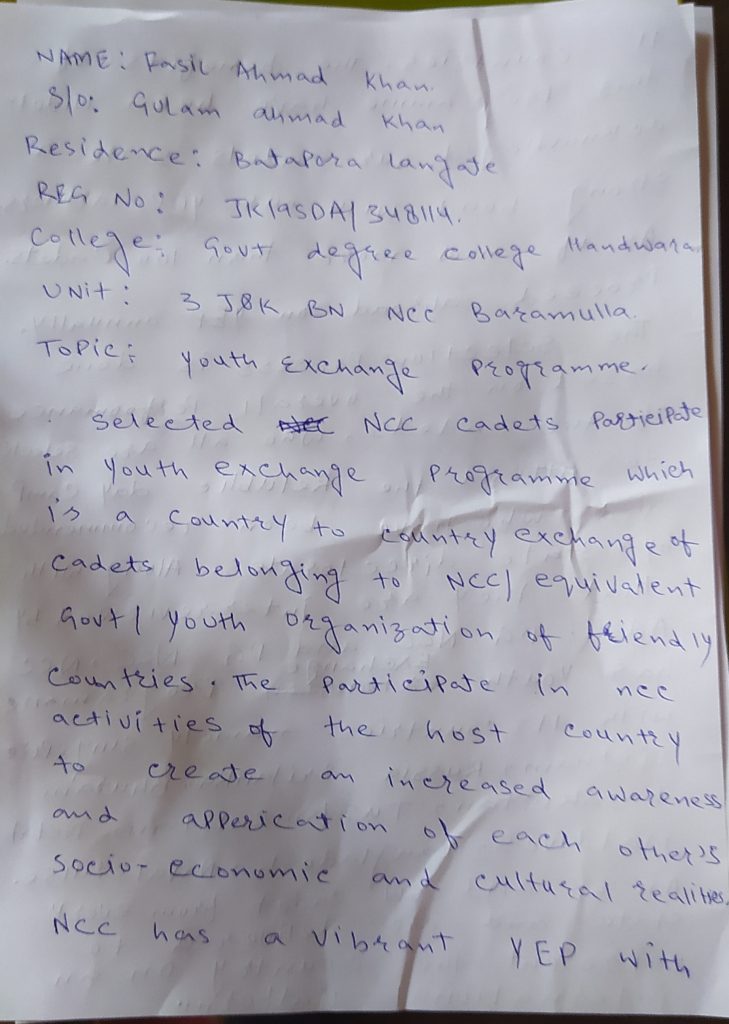 NAME: Fasil Ahmad Khan.
S/O: Gulam ahmad Khan
Residence: Batapora langate
REG No: JK19SDA/348114.
College: Govt degree college Handwara
UNit: 3 J&K BN NCC Baramulla.
Topic: Youth Exchange Programme.
Selected NCC cadets Participate
in youth exchange programme which
is a country to country exchange of
cadets belonging to NCC/ equivalent
Govt/ youth organization of friendly
countries. The participate in ncc
activities of the host country
to create an increased awareness
and apperication of each other's
socio-economic and cultural realities.
NCC has a vibrant YEP with